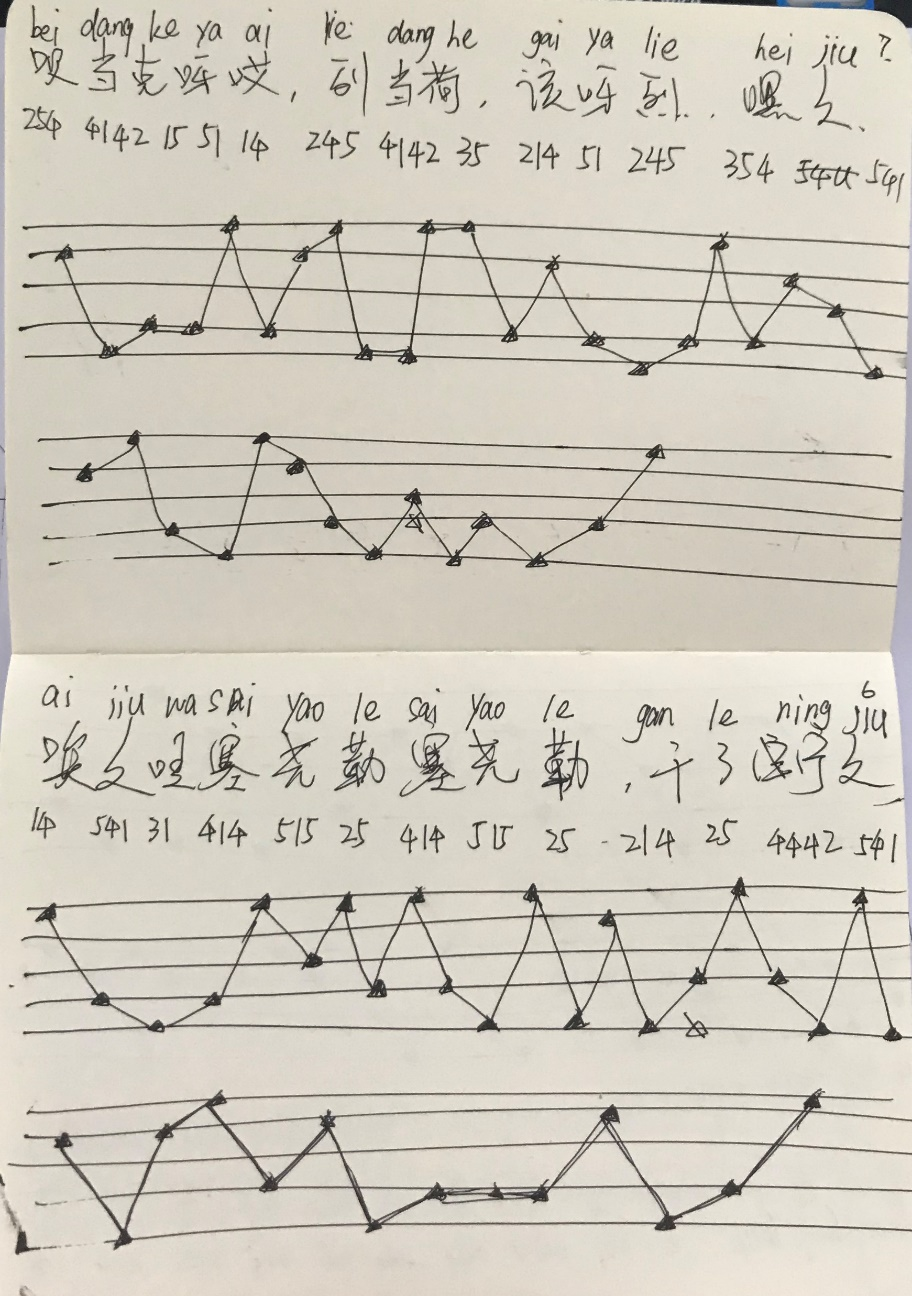 bei dang ke ya ai lie dang he gai ya lie hei jiu ?
呗当克呀哎,列当荷,该呀列.嘿久.
254 4142 15 51 14 245 4142 35 214 51 245 354 541
ai jiu wa sai yao le sai yao le gan le ning jiu
唉久哇塞尧勒塞尧勒,干了宁久
14 541 31 414 515 25 414 515 25 214 25 4442 541